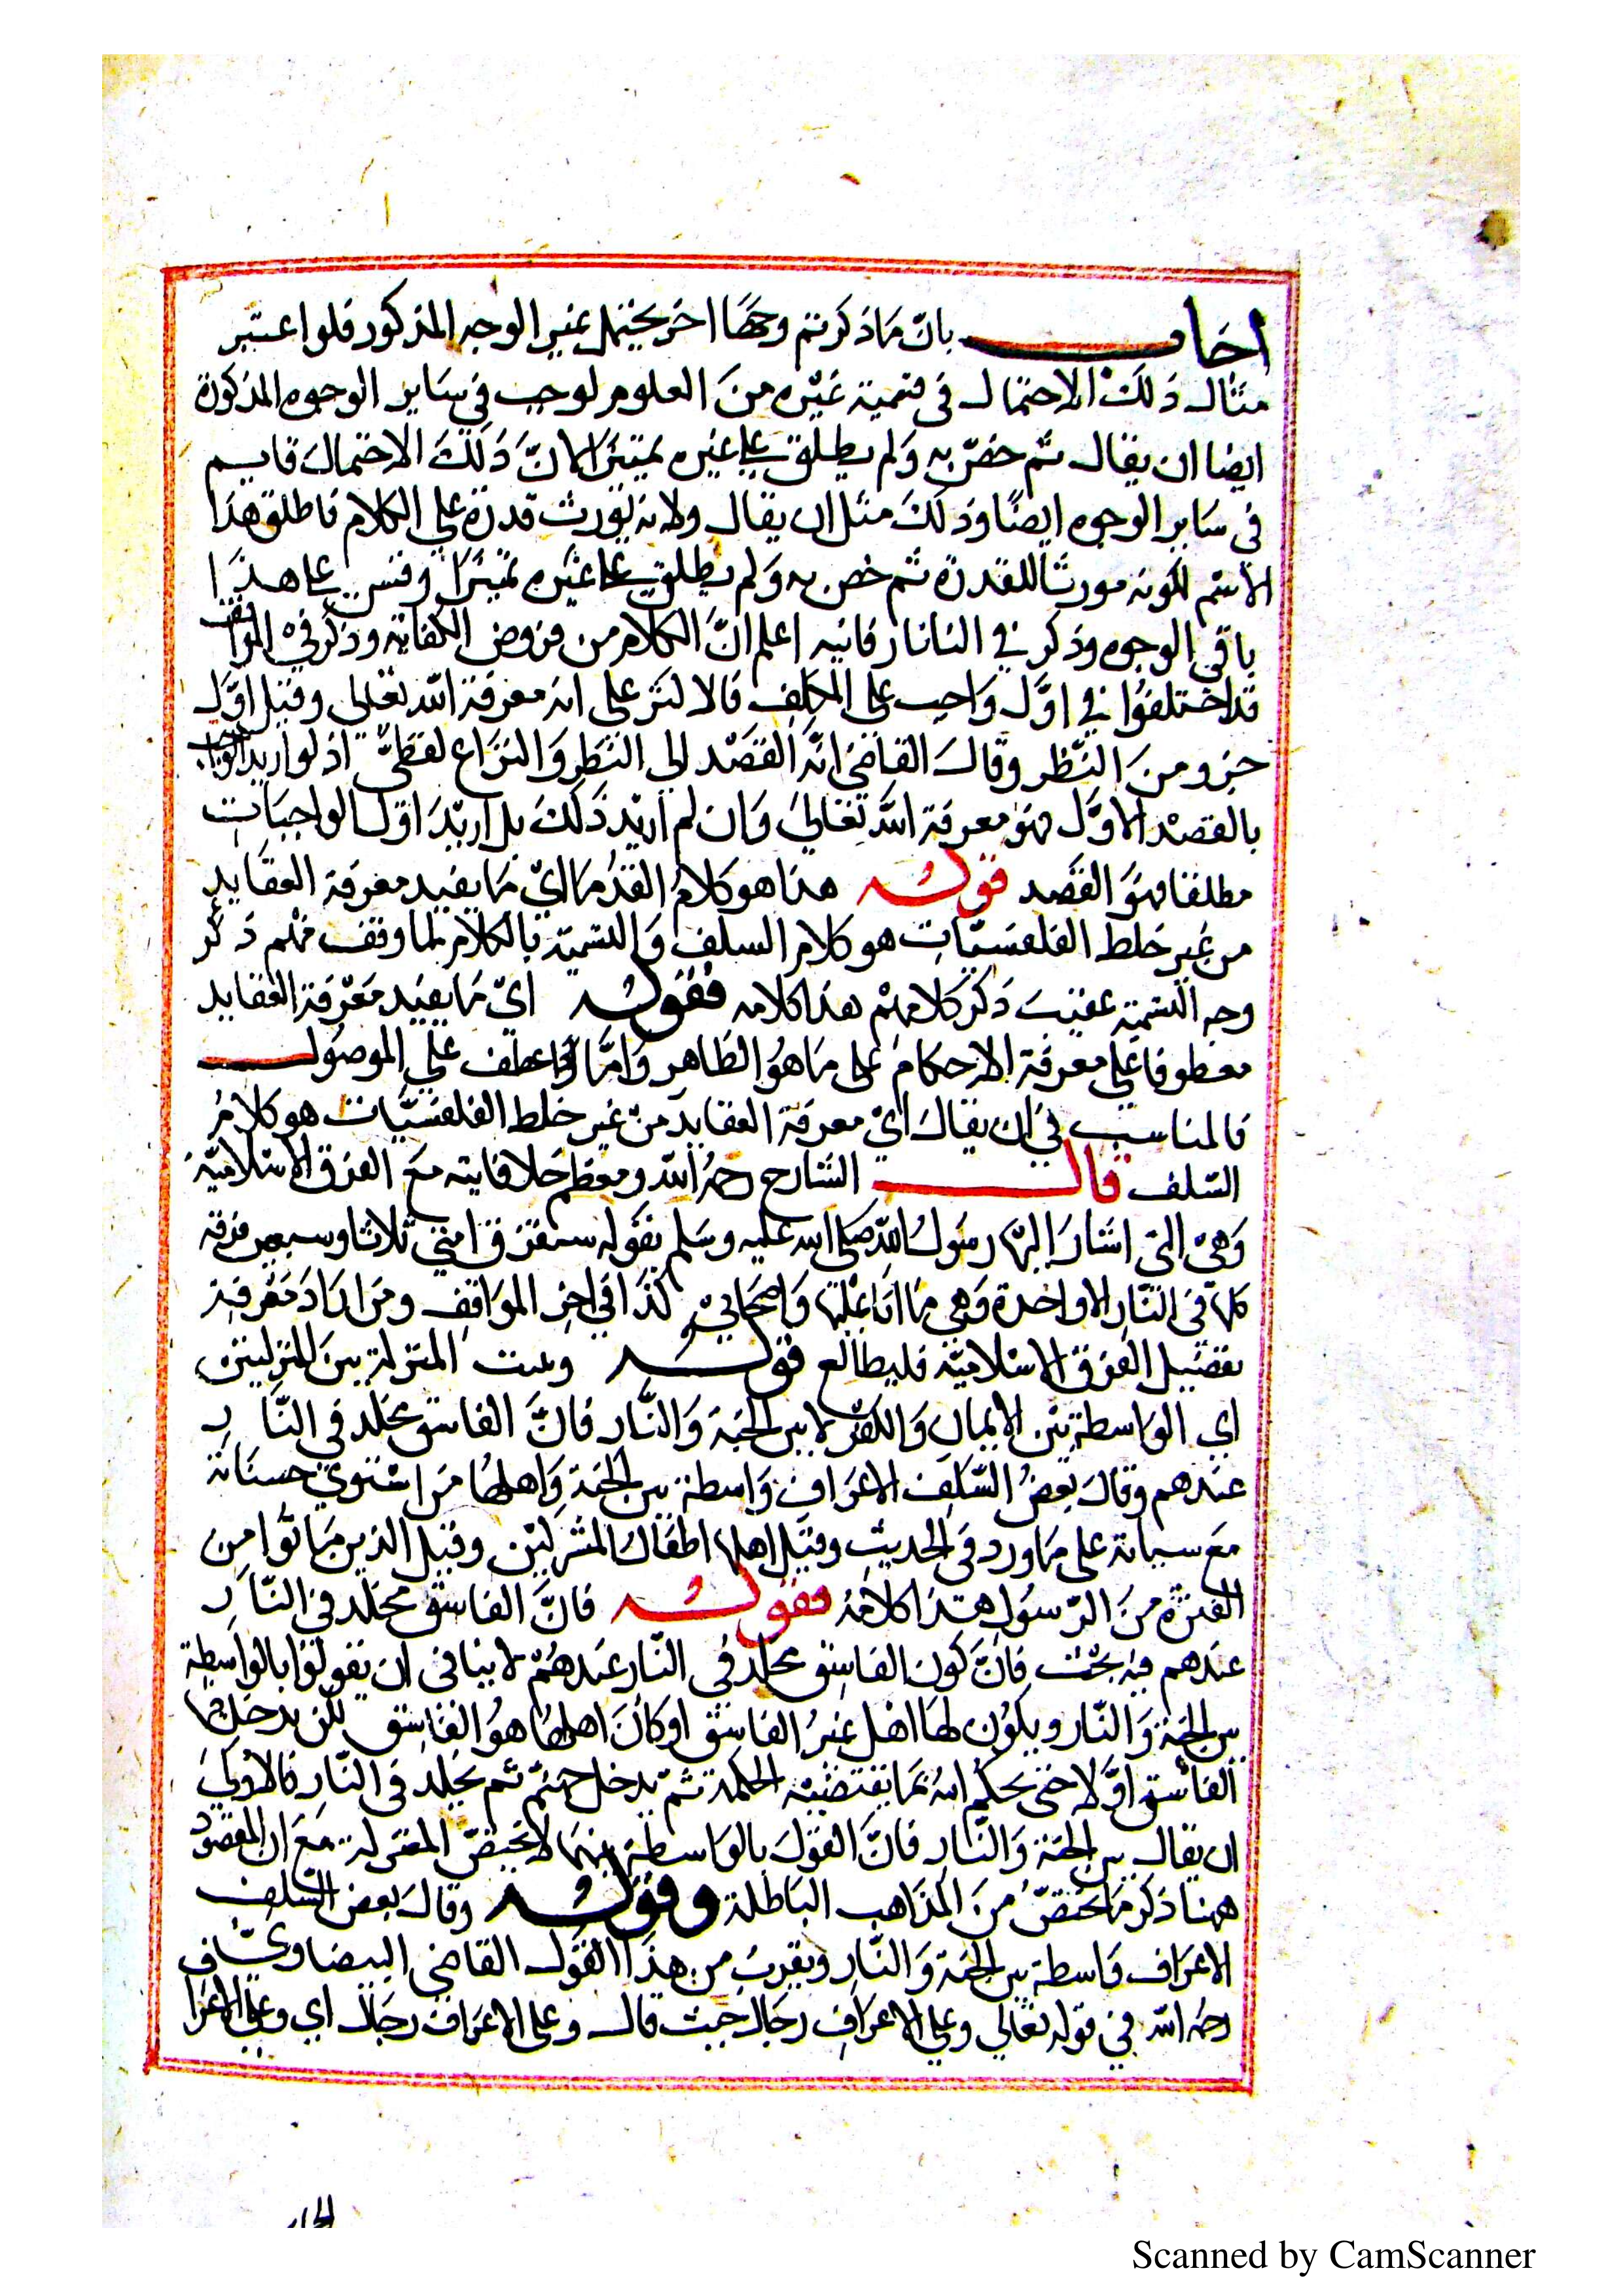 اجاب بان ما ذكرتم وجها اخر يحتمل غير الوجه المذكور فلو اعتبر
مثال ذلك الاحتمال في تسمية غيره من العلوم لوجب في ساير الوجوه المذكورة
ايضا ان يقال ثم خص به ولم يطلق على غيره تميزا لان ذلك الاحتمال قايم
في ساير الوجوه ايضا وذلك مثل ان يقال ولانه يورث قدرة على الكلام فاطلق هذا
الاسم لكونه مورثا للقدرة ثم خص به ولم يطلق على غيره تميزا وقس على هذا
باقي الوجوه وذكر في التاتارخانيه اعلم ان الكلام من فروض الكفاية وذكر في المواقف
قد اختلفوا في اول واجب على المكلف فالاكثر على انه معرفة الله تعالى وقيل اول
جزو من النظر وقال القاضي انه القصد الى النظر والنزاع لفظي اذ لو اريد الواجب
بالقصد الاول فهو معرفة الله تعالى وان لم اريد ذلك بل اريد اول الواجبات
مطلقا فهو القصد قوله هذا هو كلام القدما اي ما يفيد معرفة العقايد
من غير خلط الفلفسيات هو كلام السلف والتسمية بالكلام لما وقف منهم ذكر
وجه التسمية عقيب ذكر كلامهم هذا كلامه فقوله اي ما يفيد معرفة العقايد
معطوفا على معرفة الاحكام على ما هو الظاهر واما لو اعطف على الموصول
فالمناسب في ان يقال اي معرفة العقايد من غير خلط الفلفسيات هو كلام
السلف قال الشارح رحمه الله ومعظم خلافاته مع الفرق الاسلامية
وهي التي اشار اليها رسول الله صلى الله عليه وسلم بقوله ستفترق امتي ثلاثا وسبعين فرقة
كلها في النار الا واحدة وهي ما انا عليها واصحابي كذا في اخر المواقف ومن اراد معرفة
تفصيل الفرق الاسلامية فليطالع قوله وبينت المنزلة بين المنزلتين
اي الواسطة بين الايمان والكفر لا بين الجنة والنار فان الفاسق مخلد في النار
عندهم وقال بعض السلف الاعراف واسطة بين الجنة واهلها من استوي حسناته
مع سياته على ما ورد في الحديث وقيل اهلها اطفال المشركين وقيل الذين ماتوا من
الفترة من الرسول هذا كلامه فقوله فان الفاسق مخلد في النار
عندهم فيه بحث فان كون الفاسق مخلد في النار عندهم لا ينافي ان يقولوا بالواسطة
بين الجنة والنار ويكون لها اهل غير الفاسق او كان اهلها هو الفاسق لكن يدخلها
الفاسق اولا حتى يحكم الله بما يقتضيه الحكمة ثم يدخل جهنم ثم يخلد في النار فالاولى
ان يقال بين الجنة والنار فان القول بالواسطة بينهما لا يختص المعتزلة مع ان المقصود
ههنا ذكر ما يختص من المذاهب الباطلة وقوله وقال بعض السلف
الاعراف واسطة بين الجنة والنار ويقرب من هذا القول القاضي البيضاوي
رحمه الله في قوله تعالى وعلى الاعراف رجال حيث قال وعلى الاعراف رجال اي وعلى الاعراف
Scanned by CamScanner